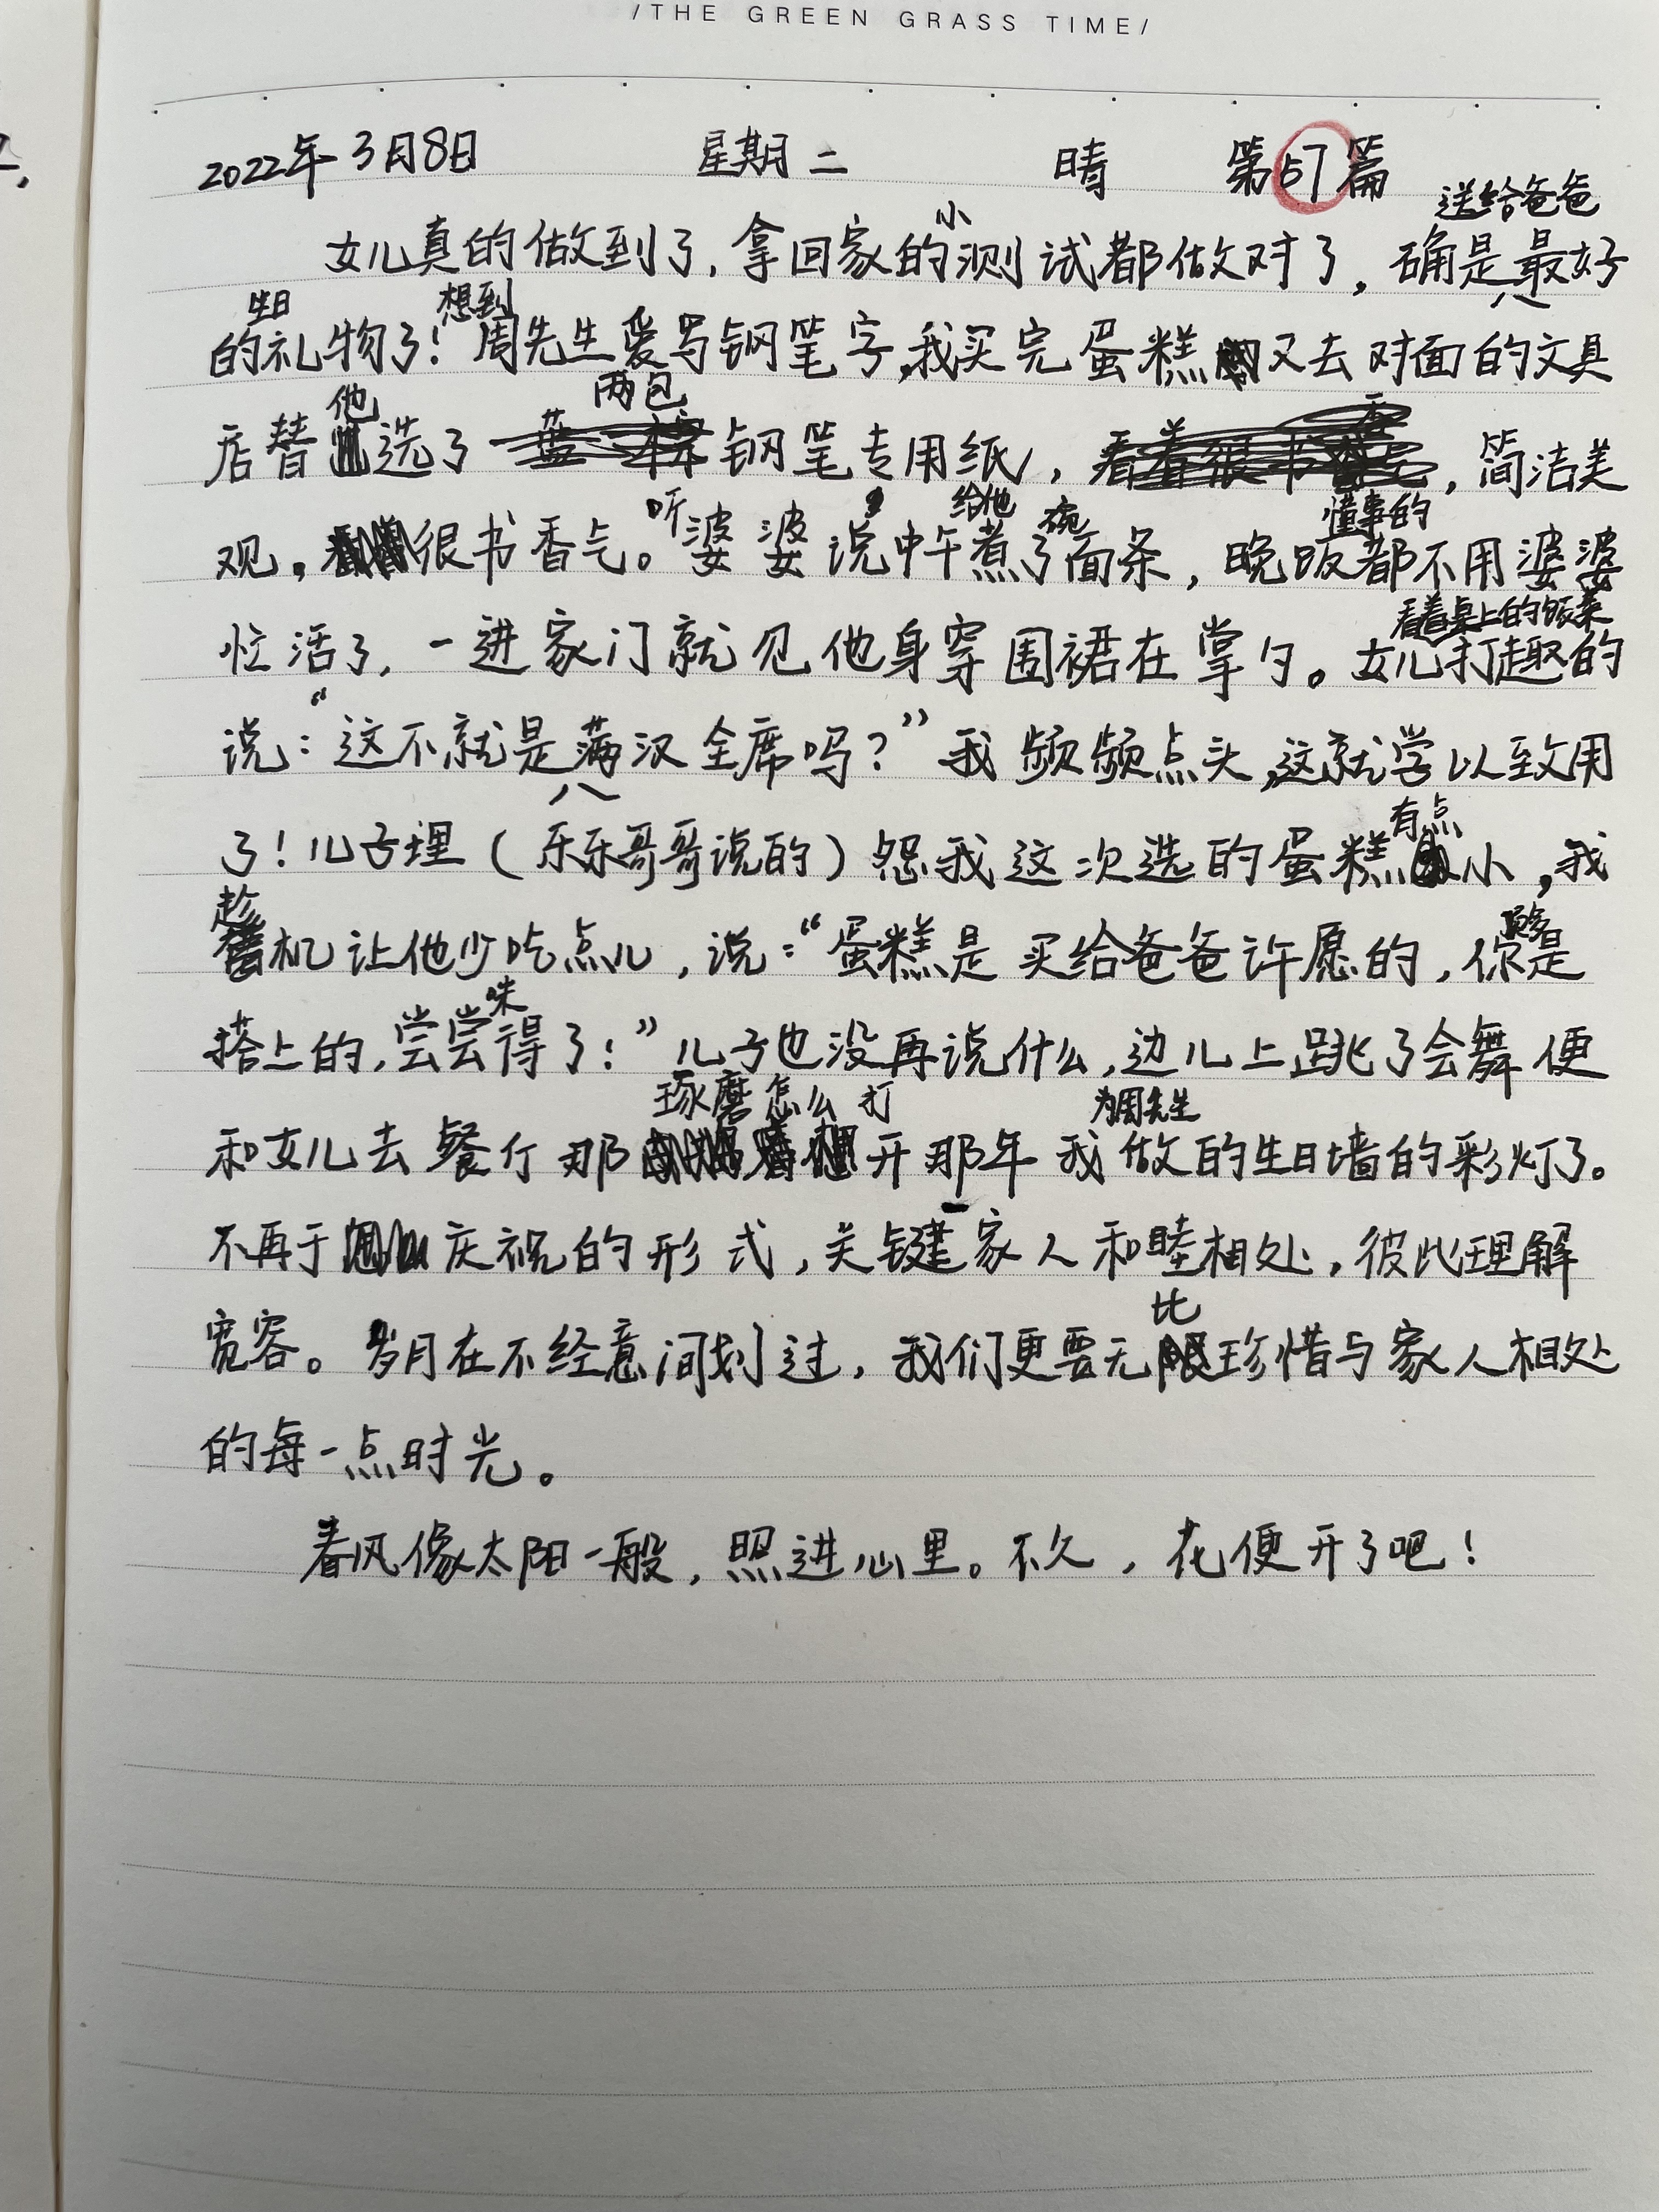 /THE GREEN GRASS TIME/
2022年3月8日 星期二 晴 第57篇
女儿真的做到了，拿回家的小测试都做对了，确是送给爸爸最好
的生日礼物了！想到周先生爱写钢笔字，我买完蛋糕又去对面的文具
店替他选了两包钢笔专用纸，简洁美
观，很书香气。听婆婆说中午给他煮了碗面条，晚饭懂事的都不用婆婆
忙活了，一进家门就见他身穿围裙在掌勺。看着桌上的饭菜女儿打趣的
说：“这不就是满汉全席吗？”我频频点头，这就学以致用
了！儿子埋（乐乐哥哥说的）怨我这次选的蛋糕有点小，我
趁机让他少吃点儿，说：“蛋糕是买给爸爸许愿的，你是
搭上的，尝尝味得了！”儿子也没再说什么，边儿上跳了会舞便
和女儿去餐厅那琢磨怎么打开那年我为周先生做的生日墙的彩灯了。
不再于庆祝的形式，关键家人和睦相处，彼此理解
宽容。岁月在不经意间划过，我们更要无比珍惜与家人相处
的每一点时光。
春风像太阳一般，照进心里。不久，花便开了吧！